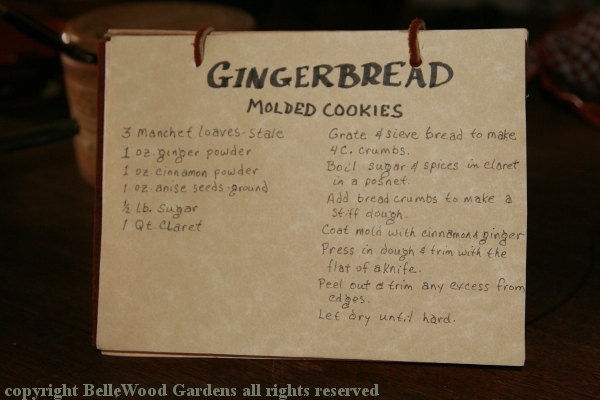 GINGERBREAD
MOLDED COOKIES
3 Manchet loaves-stale
1 oz. ginger powder
1 oz. cinnamon powder
1 oz. anise seeds-ground
½ lb. Sugar
1 Qt. Claret
Grate & sieve bread to make
4 C. crumbs.
Boil sugar & spices in claret
in a posnet.
Add bread crumbs to make a
stiff dough.
Coat mold with cinnamon & ginger
Press in dough & trim with the
flat of a knife.
Peel out & trim any excess from
edges.
Let dry until hard.
copyright BelleWood Gardens all rights reserved